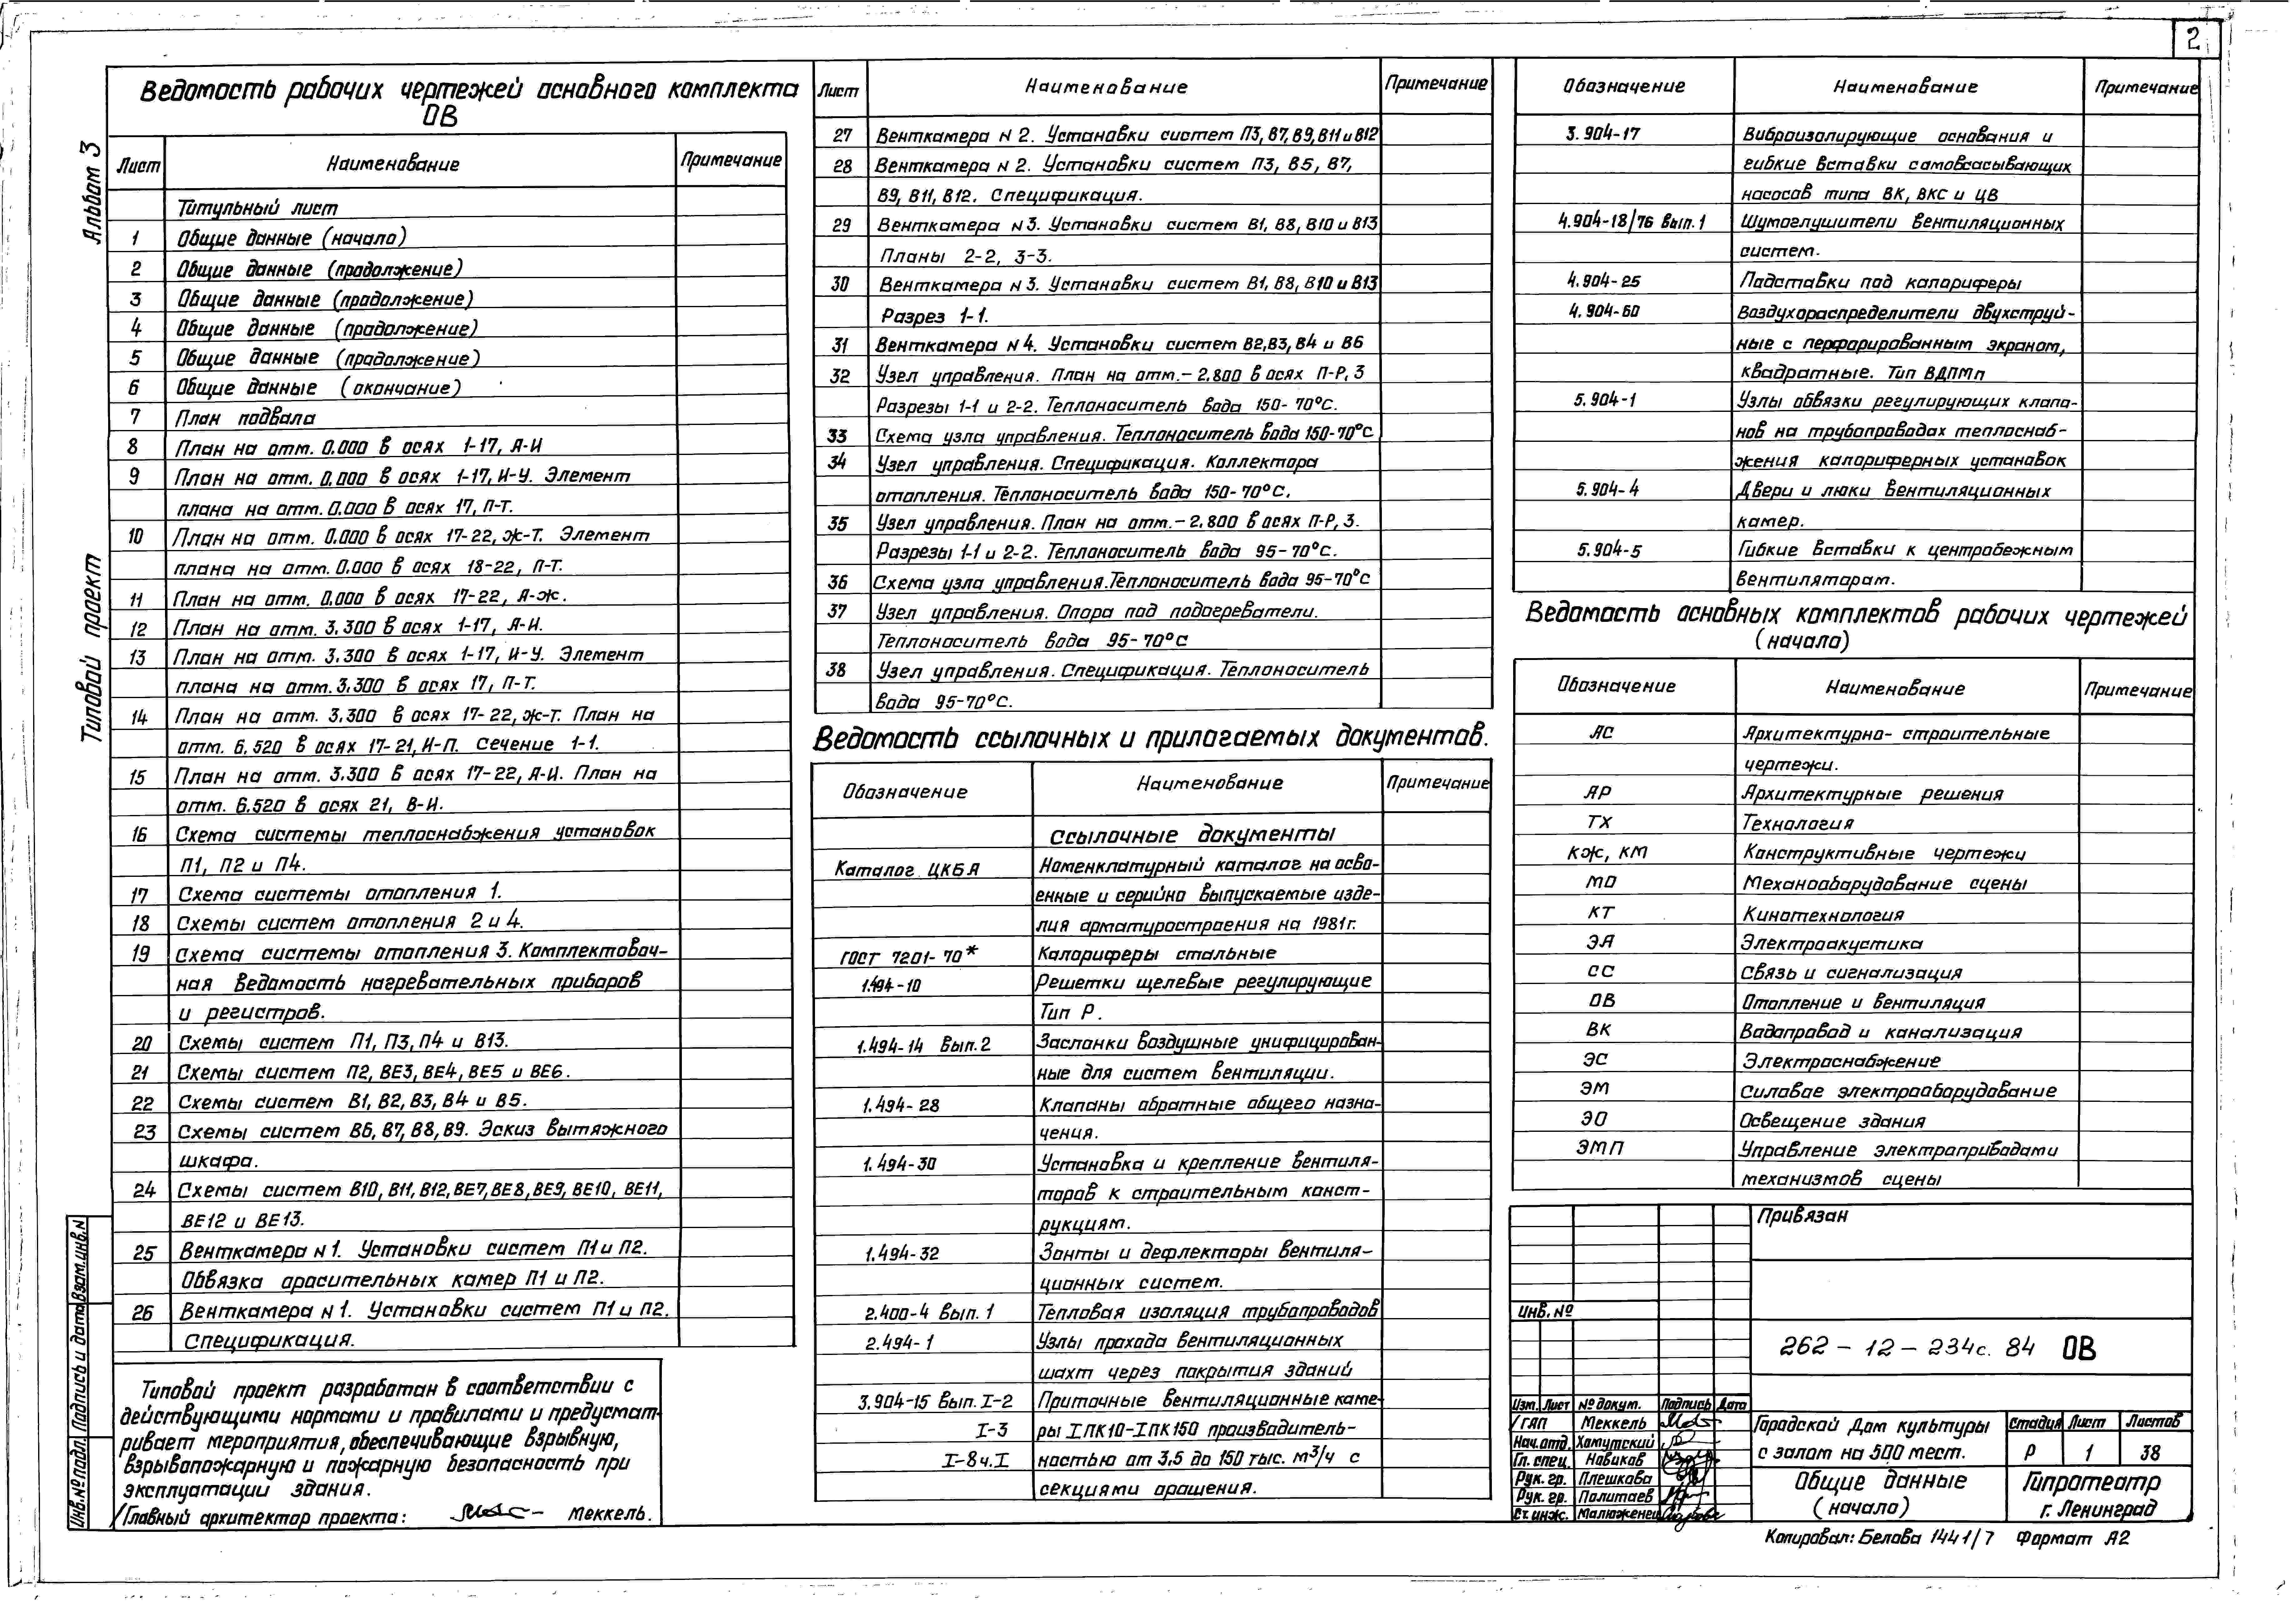 2
Альбом 3
Типовой проект
Ведомость рабочих чертежей основного комплекта
ОВ
Лист Наименование Примечание
Титульный лист
1 Общие данные (начало)
2 Общие данные (продолжение)
3 Общие данные (продолжение)
4 Общие данные (продолжение)
5 Общие данные (продолжение)
6 Общие данные (окончание)
7 План подвала
8 План на отм. 0.000 в осях 1-17, А-И
9 План на отм. 0.000 в осях 1-17, И-У. Элемент
плана на отм. 0.000 в осях 17, П-Т.
10 План на отм. 0.000 в осях 17-22, Ж-Т. Элемент
плана на отм. 0.000 в осях 18-22, П-Т.
11 План на отм. 0.000 в осях 17-22, А-Ж.
12 План на отм. 3.300 в осях 1-17, А-И.
13 План на отм. 3.300 в осях 1-17, И-У. Элемент
плана на отм. 3.300 в осях 17, П-Т.
14 План на отм. 3.300 в осях 17-22, Ж-Т. План на
отм. 6.520 в осях 17-21, И-П. Сечение 1-1.
15 План на отм. 3.300 в осях 17-22, А-И. План на
отм. 6.520 в осях 21, В-И.
16 Схема системы теплоснабжения установок
П1, П2 и П4.
17 Схема системы отопления 1.
18 Схемы систем отопления 2 и 4.
19 Схема системы отопления 3. Комплектовоч-
ная ведомость нагревательных приборов
и регистров.
20 Схемы систем П1, П3, П4 и В13.
21 Схемы систем П2, ВЕ3, ВЕ4, ВЕ5 и ВЕ6.
22 Схемы систем В1, В2, В3, В4 и В5.
23 Схемы систем В6, В7, В8, В9. Эскиз вытяжного
шкафа.
24 Схемы систем В10, В11, В12, ВЕ7, ВЕ8, ВЕ9, ВЕ10, ВЕ11,
ВЕ12 и ВЕ13.
25 Венткамера N 1. Установки систем П1 и П2.
Обвязка оросительных камер П1 и П2.
26 Венткамера N 1. Установки систем П1 и П2.
Спецификация.
Типовой проект разработан в соответствии с
действующими нормами и правилами и предусмат-
ривает мероприятия, обеспечивающие взрывную,
взрывопожарную и пожарную безопасность при
эксплуатации здания.
/Главный архитектор проекта: Меккель.
Инв. № подл. Подпись и дата Взам. инв. N
Лист Наименование Примечание
27 Венткамера N 2. Установки систем П3, В7, В9, В11 и В12
28 Венткамера N 2. Установки систем П3, В5, В7,
В9, В11, В12. Спецификация.
29 Венткамера N 3. Установки систем В1, В8, В10 и В13
Планы 2-2, 3-3.
30 Венткамера N 3. Установки систем В1, В8, В10 и В13
Разрез 1-1.
31 Венткамера N 4. Установки систем В2, В3, В4 и В6
32 Узел управления. План на отм. - 2.800 в осях П-Р, 3
Разрезы 1-1 и 2-2. Теплоноситель вода 150-70°С.
33 Схема узла управления. Теплоноситель вода 150-70°С
34 Узел управления. Спецификация. Коллектора
отопления. Теплоноситель вода 150-70°С.
35 Узел управления. План на отм. - 2.800 в осях П-Р, 3.
Разрезы 1-1 и 2-2. Теплоноситель вода 95-70°С.
36 Схема узла управления. Теплоноситель вода 95-70°С
37 Узел управления. Опора под подогреватели.
Теплоноситель вода 95-70°С
38 Узел управления. Спецификация. Теплоноситель
вода 95-70°С.
Ведомость ссылочных и прилагаемых документов.
Обозначение Наименование Примечание
Ссылочные документы
Каталог ЦКБА Номенклатурный каталог на осво-
енные и серийно выпускаемые изде-
лия арматуростроения на 1981г.
ГОСТ 7201-70* Калориферы стальные
1.494-10 Решетки щелевые регулирующие
Тип Р.
1.494-14 Вып. 2 Заслонки воздушные унифицирован-
ные для систем вентиляции.
1.494-28 Клапаны обратные общего назна-
чения.
1.494-30 Установка и крепление вентиля-
торов к строительным конст-
рукциям.
1.494-32 Зонты и дефлекторы вентиля-
ционных систем.
2.400-4 Вып. 1 Тепловая изоляция трубопроводов
2.494-1 Узлы прохода вентиляционных
шахт через покрытия зданий
3.904-15 Вып. I-2 Приточные вентиляционные каме-
I-3 ры IПК10-IПК150 производитель-
I-8 ч. I ностью от 3,5 до 150 тыс. м³/ч с
секциями орашения.
Обозначение Наименование Примечание
3.904-17 Виброизолирующие основания и
гибкие вставки самовсасывающих
насосов типа ВК, ВКС и ЦВ
4.904-18/76 Вып. 1 Шумоглушители вентиляционных
систем.
4.904-25 Подставки под калориферы
4.904-60 Воздухораспределители двухструй-
ные с перфорированным экраном,
квадратные. Тип ВДПМп
5.904-1 Узлы обвязки регулирующих клапа-
нов на трубопроводах теплоснаб-
жения калориферных установок
5.904-4 Двери и люки вентиляционных
камер.
5.904-5 Гибкие вставки к центробежным
вентиляторам.
Ведомость основных комплектов рабочих чертежей
(начало)
Обозначение Наименование Примечание
АС Архитектурно-строительные
чертежи.
АР Архитектурные решения
ТХ Технология
КЖ, КМ Конструктивные чертежи
МО Механооборудование сцены
КТ Кинотехнология
ЭА Электроакустика
СС Связь и сигнализация
ОВ Отопление и вентиляция
ВК Водопровод и канализация
ЭС Электроснабжение
ЭМ Силовое электрооборудование
ЭО Освещение здания
ЭМП Управление электроприводами
механизмов сцены
Привязан
Инв. №
262-12-234с. 84 ОВ
Изм. Лист № докум. Подпись Дата
/ГАП Меккель
Нач. отд. Хомутский
Гл. спец. Новиков
Рук. гр. Плешкова
Рук. гр. Политаев
Ст. инж. Малюженец
Городской Дом культуры
с залом на 500 мест.
Стадия Лист Листов
Р 1 38
Общие данные
(начало)
Гипротеатр
г. Ленинград
Копировал: Белова 1441/7 Формат А2